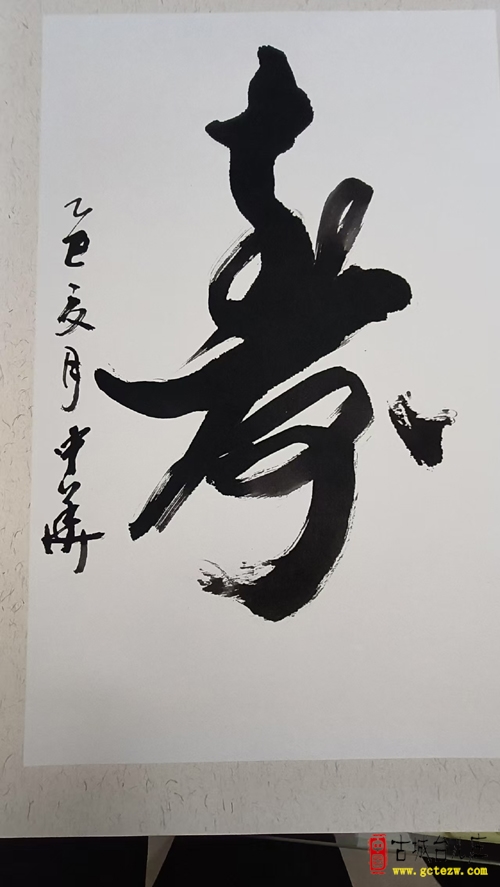 寿
乙巳夏月中華
古城台儿庄
www.gctezw.com